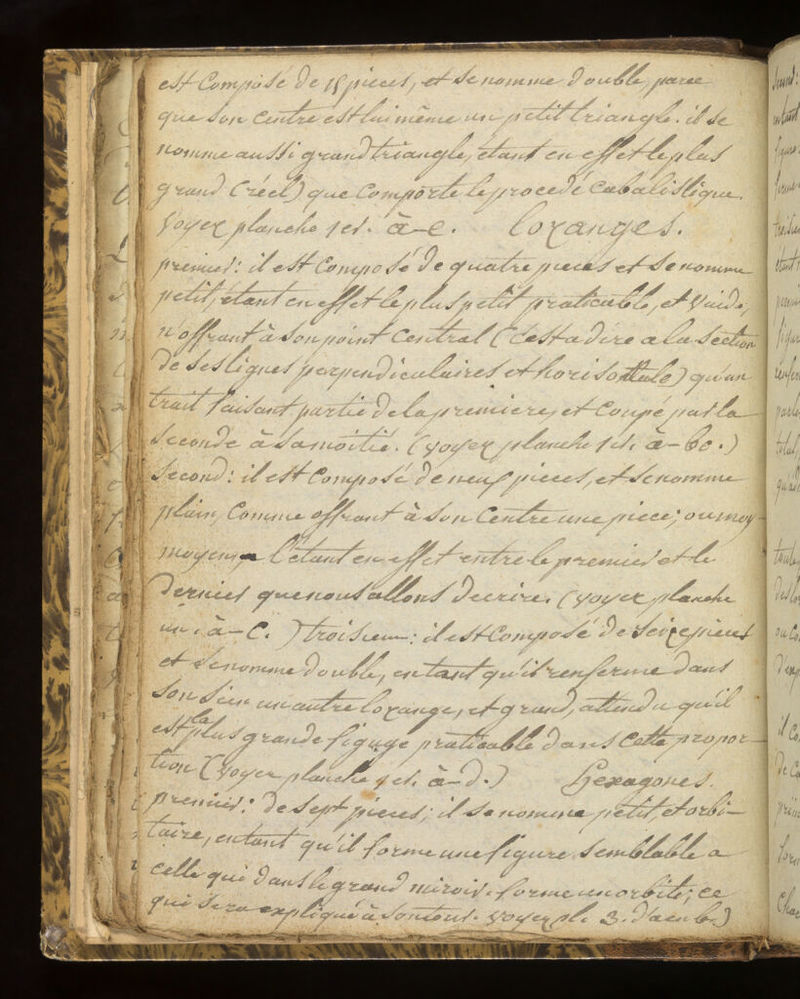 est Composé de 15 pieces, et se nomme double, parce
que son Centre est lui même un petit triangle. il se
nomme aussi grand triangle, étant en effet le plus
grand (réel) que Comporte le procedé Cabalistique.
Voyez planche 1er. a-e. Loxanges.
premier: il est Composé de quatre pieces et se nomme
petit, étant en effet le plus petit praticable, et Vuide,
n'offrant à son point Central (c'est a dire a la section
de ses lignes perpendiculaires et horisontale) qu'un
trait faisant partie de la premiere, et Coupé par la
seconde à sa moitié. (voyez planche 1er. a-bc.)
Second: il est Composé de neuf pieces, et se nomme
plain, Comme offrant à son Centre une piece; ou moy-
moyen, l'étant en effet entre le premier et le
dernier que nous allons décrire. (voyez planche
un. a-C.) troisiem: il est Composé de seize pieces
et se nomme double, en tant qu'il renferme dans
son sien un autre loxange, et grand, attendu qu'il
est la plus grande figuge praticable dans Cette propor-
tion (Voyez planche 1er. a-d.) Hexagones.
premier: de Sept pieces; il se nomme petit, et orbi-
taire, entant qu'il forme une figure semblable a
celle qui dans le grand miroir forme un orbite; ce
qui sera expliqué à son tour. voyez pl. 3. d'a en b.)